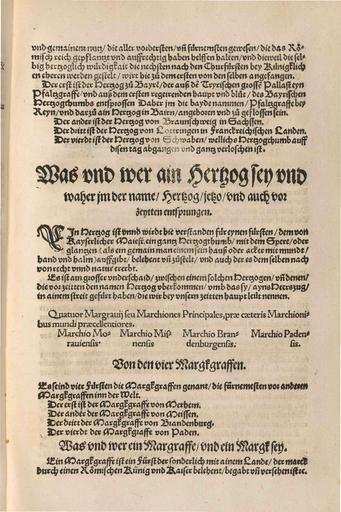 vnd gemainem nutz / die aller vordersten / vñ fürnemsten gewesen / die das Rö-
misch reich gepflantzt vnd auffrechtig haben helffen halten / vnd dieweil die sel-
big hertzoglich würdigkait die nechsten nach den Churfürsten bey Küniglich-
en eheren werden gestelt / wirt bie zu dem ersten von den selben angefangen.
Der erst ist der Hertzog zů Bayrē / der auß dē Teyrischen grossē Pallast eyn
Pfaltzgraffe / vnd auß dem ersten regerenden haupt vnd blůt / des Bayrischen
Hertzogthumbs entsprossen Daher jm die bayde nammen / Pfaltzgraffe bey
Reyn / vnd darzů ain Hertzog in Bairn / angeboren vnd zů geflossen sein.
Der ander ist der Hertzog von Braunschweig in Sachssen.
Der dritt ist der Hertzog von Lottringen in Franckreichischen Landen.
Der vierde ist der Hertzog von Schwaben / wellichs Hertzogthumb auff
disen tag abgangen vnd gantz verloschen ist.
Was vnd wer ain Hertzog sey vnd
waher jm der name / Hertzog / jetzo / vnd auch vor
zeytten entsprungen.
EIn Hertzog ist vnnd wirdt hie verstanden für eynen fürsten / dem von
Kayserlicher Maiest. ein gantz Hertzogthumb / mit dem Spere / oder
glantzen (als ein gemain man sein hauß oder acker mit mundt /
hand vnd halm) auffgibt / belehent vñ zůstelt / vnd auch der es dem selben nach
von recht vnnd natur ererbt.
Es ist am grosser vnderschaid / zwischen einem solchen Hertzogen / vñ denen /
die vor zeitten den namen Hertzog vberkommen / vmb das sy / ayns Heerszug /
in ainem streit gefürt haben / die wir bey vnsern zeitten haupt leüt nennen.
Quatuor Margrauij seu Marchiones Principales, præ cæteris Marchioni-
bus mundi præcellentiores.
Marchio Mo- Marchio Miß- Marchio Bran- Marchio Paden-
rauiensis. nensis denburgensis. sis.
Von den vier Margkgraffen.
Es seind vier Fürsten die Margkgraffen genant / die fürnemesten vor anderen
Margkgraffen inn der Welt.
Der erst ist der Margkgraffe von Merhern.
Der ander der Margkgraffe von Meissen.
Der dritt der Margkgraffe von Brandenburg.
Der vierde der Margkgraffe von Paden.
Was vnd wer ein Margraffe / vnd ein Margk sey.
Ein Margkgraffe ist ein Fürst der sonderlich mit ainem Lande / der marck
durch einen Römischen Künig vnd Kaiser belehent / begabt vñ versehen ist ꝛc.